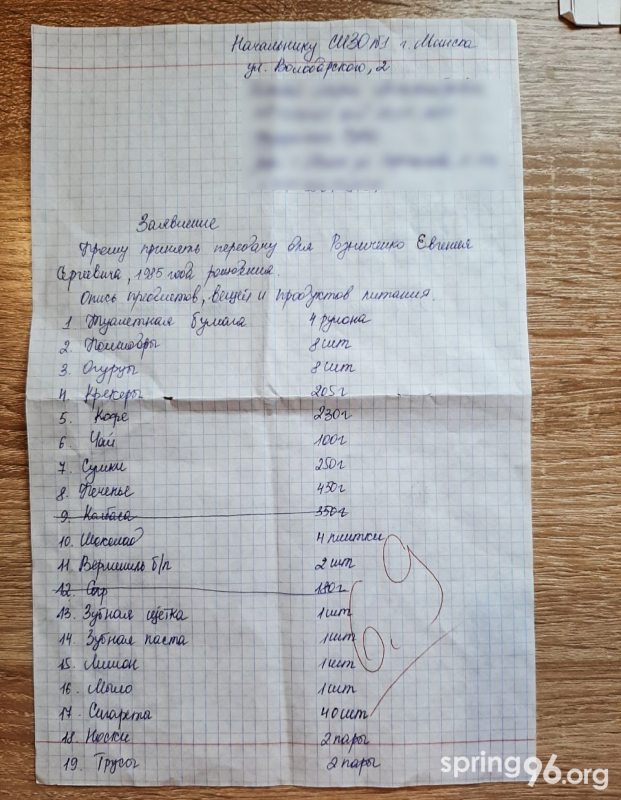 Начальнику СИЗО №1 г. Минска
ул. Володарского, 2
Заявление
Прошу принять передачу для Евгения
Сергеевича, 1985 года рождения.
Опись предметов, вещей и продуктов питания.
1 Туалетная бумага 4 рулона
2. Помидоры 8 шт
3. Огурцы 8 шт
4. Крекеры 205 г
5. Кофе 230 г
6. Чай 100 г
7. Сушки 250 г
8. Печенье 450 г
9. Колбаса 350 г
10. Шоколад 4 плитки
11. Вермишель б/п 2 шт
12. Сыр 180 г
13. Зубная щётка 1 шт
14. Зубная паста 1 шт
15. Лимон 1 шт
16. Мыло 1 шт
17. Сигареты 40 шт
18. Носки 2 пары
19. Трусы 2 пары
6,9
spring96.org